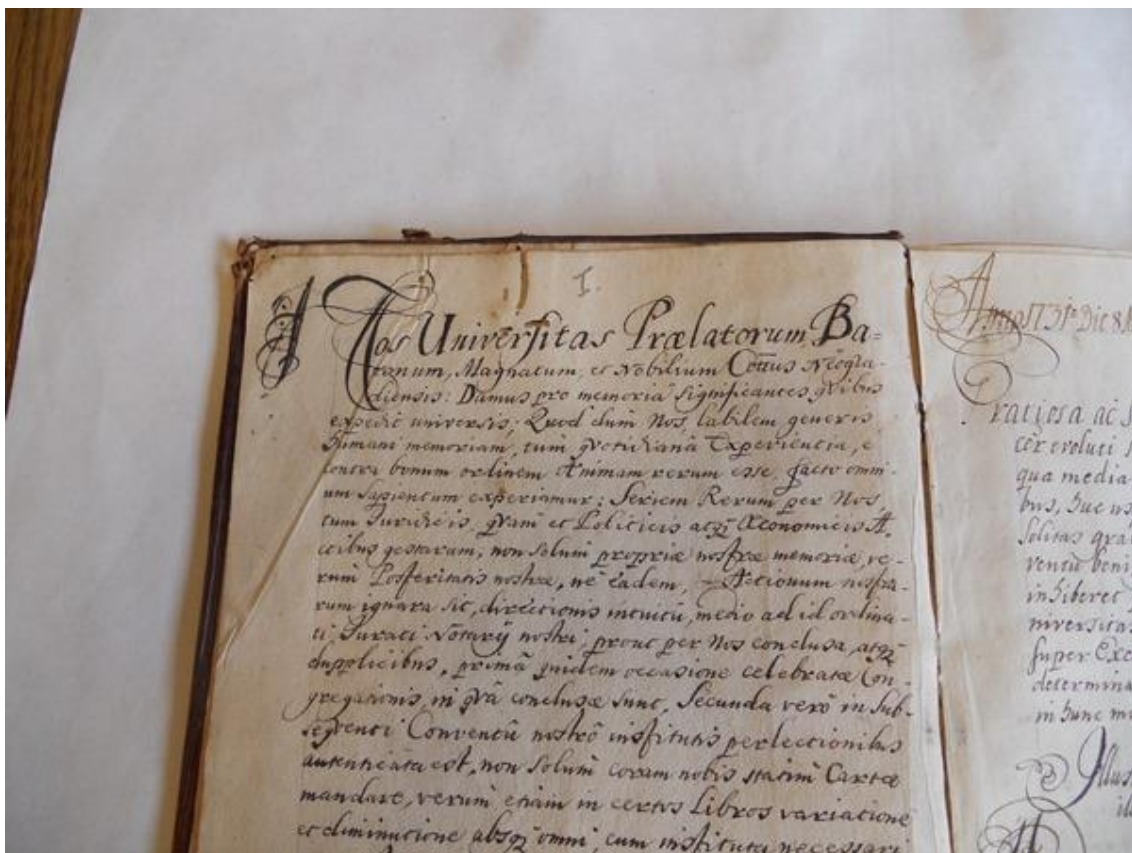 I.
Nos Universitas Prælatorum Ba=
ronum, Magnatum, et Nobilium Cottus Neogra-
diensis: Damus pro memoria significantes qvibus
expedit universis; Quod dum Nos, labilem generis
humani memoriam, tum qvotidianâ Experientia, e
contra bonum ordinem Animam rerum esse, facto omni-
um Sapientum experiamur; Seriem Rerum per Nos,
tum Juridicis, qvam et Politicis atq Œconomicis A-
ctibus gestarum, non solum propriæ nostræ memoriæ, ve-
rum Posteritatis nostræ, ne eadem, Actionum nostra-
rum ignara sit, directionis intuitu, medio ad id ordina-
ti Jurati Notarÿ nostri; prout per Nos conclusa, atq
dupplicibus, primâ quidem occasione celebratæ Con-
gregationis, in qvâ conclusæ sunt, Secunda verò in Sub-
seqventi Conventu nostrô institutis perlectionibus
autenticata est, non solum coram nobis statim Cartæ
mandare, verum etiam in certos Libros variatione
et diminutione absq omni, cum instituti necessari
Anno 1731o Die 8
ratiosa ac S
cer evoluti
qua media
bus, huc us
solitas gra
ventu beni
inhiberet
niversitas
super Exc
determina
in hunc m
Illus